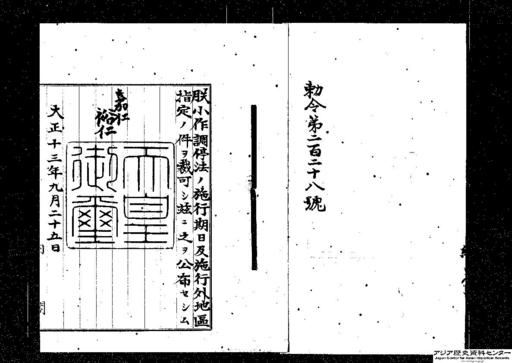 勅令第二百二十八號
朕小作調停法ノ施行期日及施行外地區
指定ノ件ヲ裁可シ茲ニ之ヲ公布セシム
嘉仁
裕仁
天皇
御璽
大正十三年九月二十五日
アジア歴史資料センター
Japan Center for Asian Historical Records